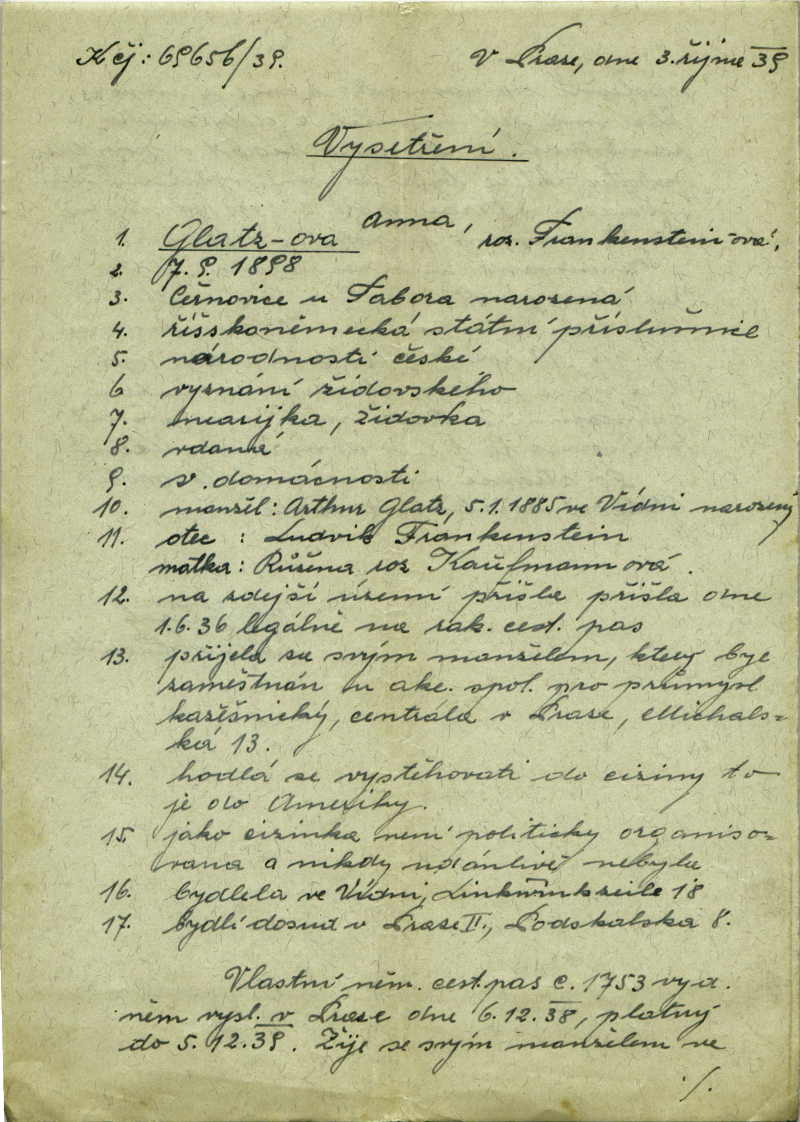 K čj: 69656/39.
V Praze, dne 3. října 39
Vyšetření.
1. Glatz-ova Anna, roz. Frankenstein-ová,
2. 7. 9. 1898
3. Černovice u Tabora narozená
4. říšskoněmecká státní příslušnice
5. národnosti české
6 vyznání židovského
7. nearijka, židovka
8. vdaná
9. v domácnosti
10. manžel: Arthur Glatz, 5. 1. 1885 ve Vídni narozený
11. otec : Ludvik Frankenstein
matka: Růžena roz Kaufmannová.
12. na zdejší území přišla přišla dne
1. 6. 36 legálně na rak. cest. pas
13. přijela se svým manželem, který bye
zaměstnán u akc. spol. pro průmysl
kožešnický, centrála v Praze, Michals=
ká 13.
14. hodlá se vystěhovati do ciziny to
je do Ameriky.
15. jako cizinka není politicky organiso=
vana a nikdy udánlivě nebyla
16. bydlela ve Vídni, 18
17. bydlí dosud v Praze II., Podskalska 8.
Vlastní něm. cest. pas č. 1753 vyd.
něm vysl. v Praze dne 6. 12. 38, platný
do 5. 12. 39. Žije se svým manželem ve
./.